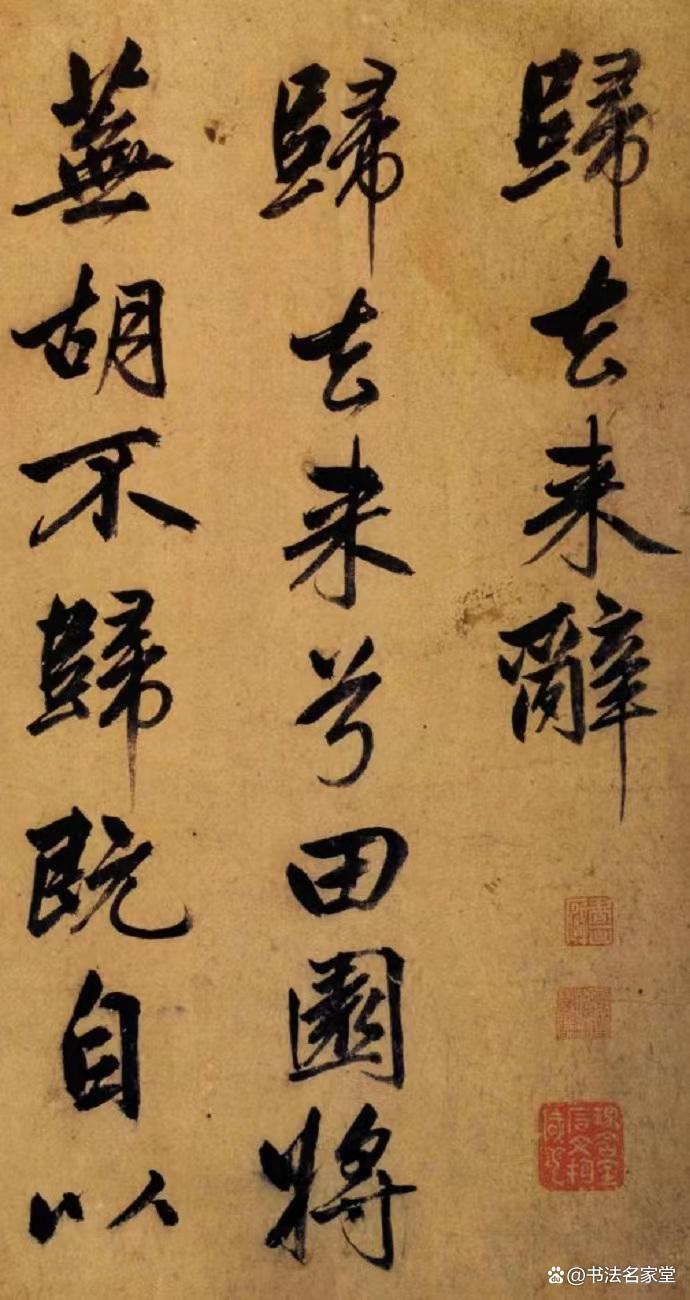 歸去来辭
歸去来兮田園將
蕪胡不歸既自以
@书法名家堂